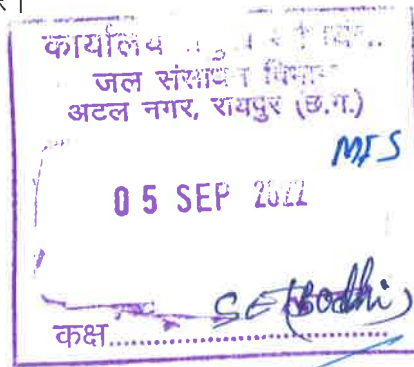 कार्यालय
जल संसाधन विभाग
अटल नगर, रायपुर (छ.ग.)
MIS
05 SEP 2022
SE (Bodhi)
कक्ष....................